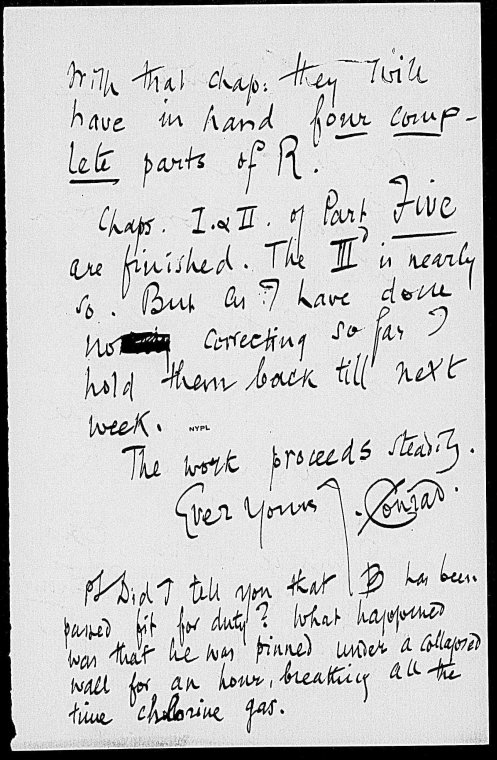 With that chap: they will
have in hand four comp-
lete parts of R.
Chaps. I. & II. of Part Five
are finished. The IIId is nearly
so. But as I have done
no correcting so far I
hold them back till next
week.
NYPL
The work proceeds steadily.
Ever Yours J. Conrad.
PS Did I tell you that B has been
passed fit for duty? What happened
was that he was pinned under a collapsed
wall for an hour, breathing all the
time chlorine gas.